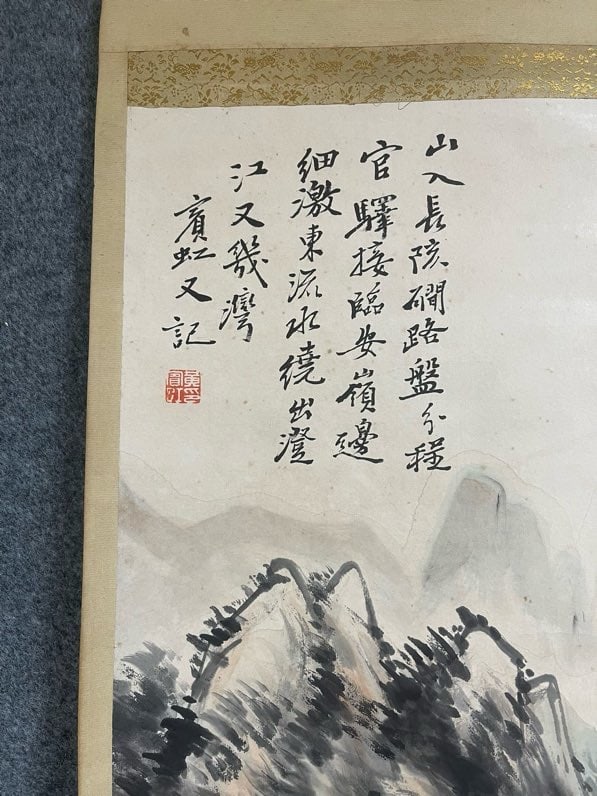 山入長陔磵路盤分程
官驛接臨安嶺邊
細激東流水繞出澄
江又幾灣
賓虹又記